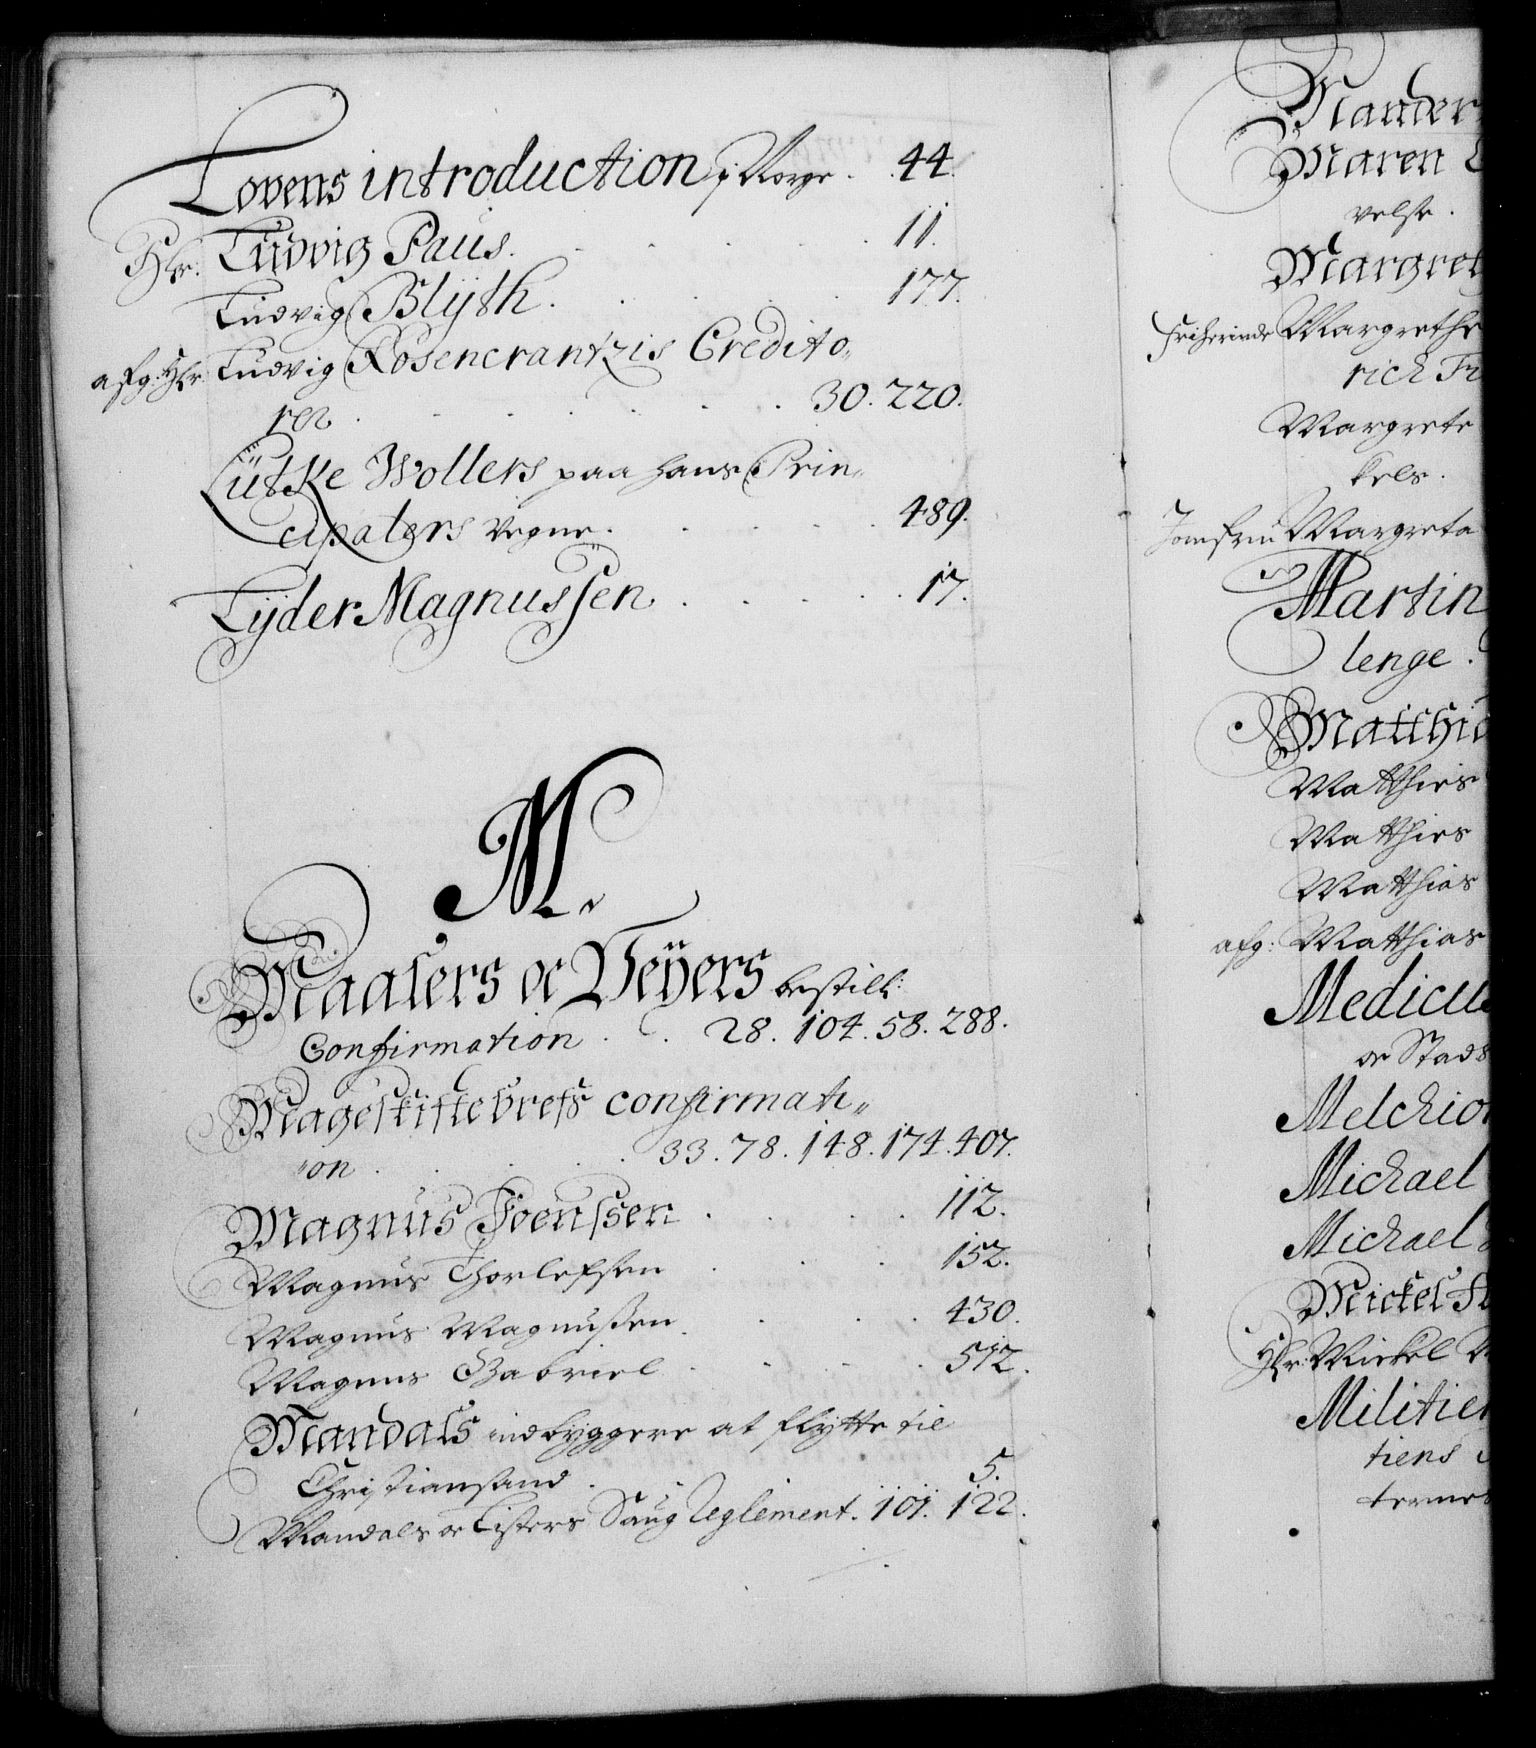 Lovens introduction i Norge . . 44.
Hr: Ludvig Paus. . . . . . 11.
Ludvig Blyth. . . . . 177.
afg: Hr Ludvig Rosencrantzis Credito„
rer . . . . . . . 30. 220.
Lütke Wollers paa hans Prin„
cipalers Vegne. . . . . . 489.
Lÿder Magnussen . . . . . . 17.
M.
Maalers oc Veÿers bestill:
Confirmation . . 28. 104. 58. 288.
Mageskiftebrefs confirmati„
„on . . . . . 33. 78. 148. 174. 407.
Magnus Joenssen . . . . 112.
Magnus Thorlefsen . . . . 152.
Magnus Magnussen . . . . 430.
Magnus Gabriel . . . . . 512.
Mandals indbyggere at flytte til
Christiansand . 5.
Mandals oc Listers Saug Reglement. 101. 122.
Mander
Maren
velse.
Margret
Friherinde Margrethe
rich Fr
Margrete
kels.
Jomfru Margreta
Martin
lenge.
Matthi
Matthies
Matthies
Matthias
afg: Matthias
Medicus
oc Stads
Melchior
Michael
Michael
Mickel
Hr: Mickel
Militien
tiens